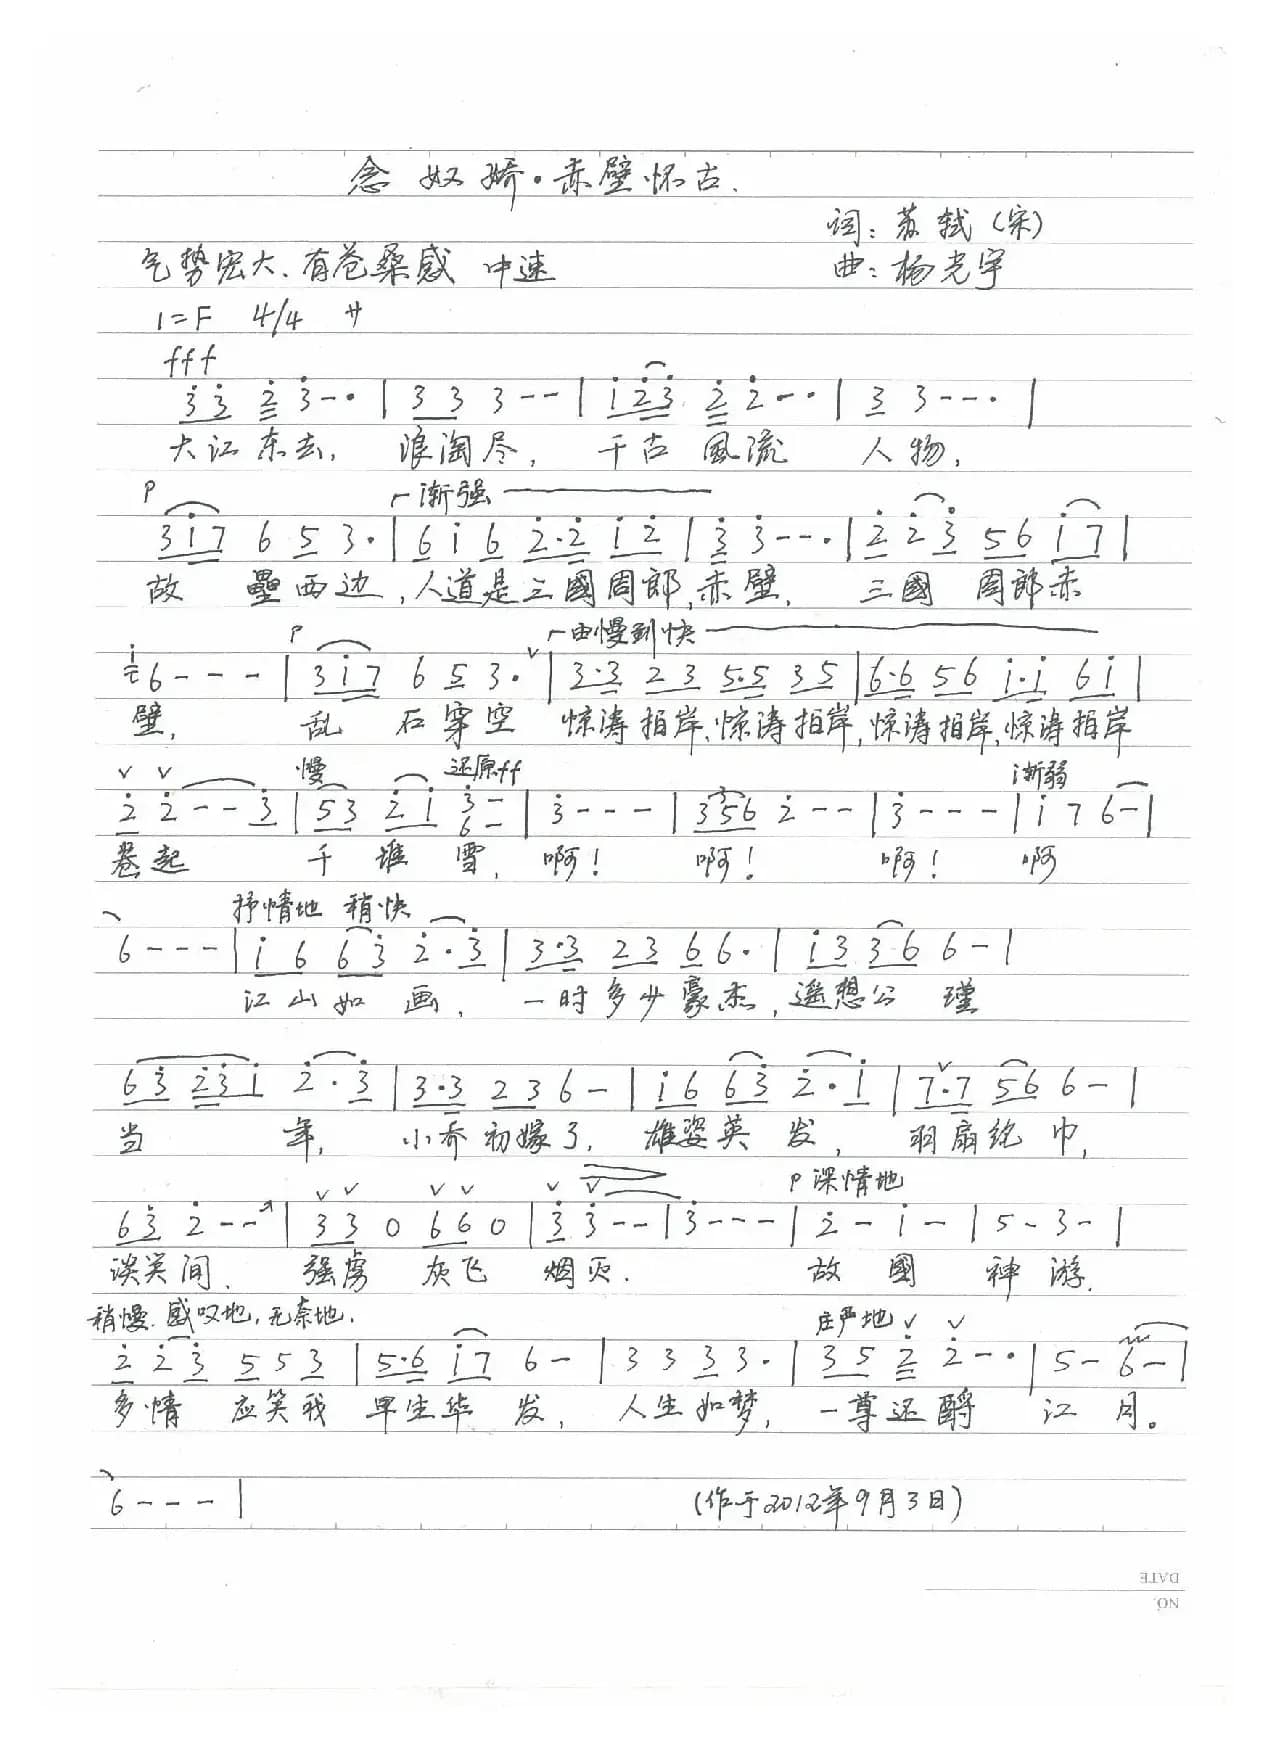 念奴娇·赤壁怀古.
词：苏轼（宋）
气势宏大、有苍桑感 中速
曲：杨光宇
1=F 4/4 サ
fff
3 3 2 3 - - · | 3 3 3 - - | i 2 3 2 2 - - · | 3 3 - - · |
大江东去, 浪淘尽, 千古風流 人物,
p ┌渐强
3 i 7 6 5 3 · | 6 i 6 2 · 2 i 2 | 3 3 - - · | 2 2 3 5 6 i 7 |
故 壘西边,人道是三國周郎,赤壁, 三國 周郎赤
p ┌由慢到快
i 6 - - - | 3 i 7 6 5 3 · v | 3 · 3 2 3 5 · 5 3 5 | 6 · 6 5 6 i · i 6 i |
壁, 乱 石穿空 惊涛拍岸、惊涛拍岸,惊涛拍岸,惊涛拍岸
v v 慢 还原ff 渐弱
2 2 - - 3 | 5 3 2 i 3 - 6 - | 3 - - - | 3 5 6 2 - - | 3 - - - | i 7 6 - |
卷起 千堆 雪, 啊! 啊! 啊! 啊
抒情地 稍快
6 - - - | i 6 6 3 2 · 3 | 3 · 3 2 3 6 6 · | i 3 3 6 6 - |
江山如 画, 一时多少豪杰,遥想公 瑾
6 3 2 3 i 2 · 3 | 3 · 3 2 3 6 - | i 6 6 3 2 · i | 7 · 7 5 6 6 - |
当 年, 小乔初嫁了, 雄姿英 发, 羽扇纶巾,
v v v v v v p 深情地
6 3 2 - - | 3 3 0 6 6 0 | 3 3 - - | 3 - - - | 2 - i - | 5 - 3 - |
谈笑间. 强虏 灰飞 烟灭. 故 國 神 游.
稍慢. 感叹地,无奈地. 庄严地 v v
2 2 3 5 5 3 | 5 · 6 i 7 6 - | 3 3 3 3 · | 3 5 2 2 - · | 5 - 6 - |
多情 应笑我 早生华 发, 人生如梦, 一尊还酹 江 月。
6 - - - |
(作于2012年9月3日)
DATE
NO.